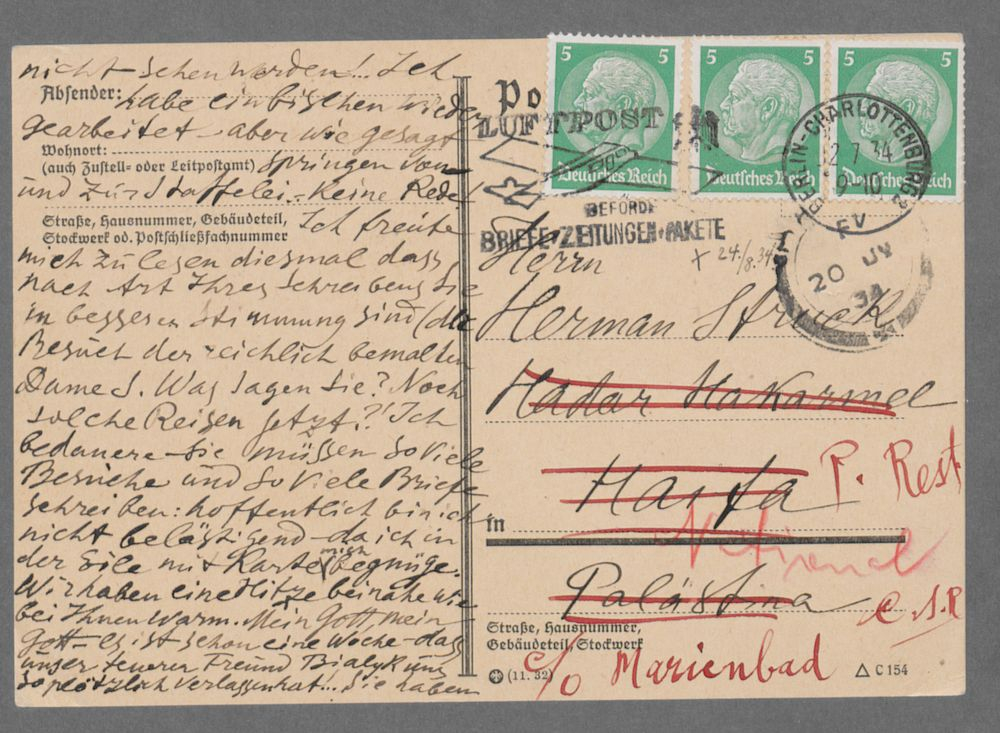 nicht sehen werden!.. Ich
Absender: habe ein bischen wieder
gearbeitet – aber wie gesagt
Wohnort:
(auch Zustell- oder Leitpostamt) springen von
und zur Staffelei.. Keine Rede
Straße, Hausnummer, Gebäudeteil,
Stockwerk od. Postschließfachnummer
Ich freute
mich zu lesen diesmal dass
nach Art Ihres Schreibens Sie
in besseren Stimmung sind (der
Besuch der reichlich bemalten
Dame S. Was sagen Sie? Noch
solche Reisen jetzt?! Ich
bedauere – Sie müssen so viele
Besuche und so viele Briefe
schreiben: hoffentlich bin ich
nicht belästigend – da ich in
der Eile mit Karte mich begnüge.
Wir haben eine Hitze beinahe wie
bei Ihnen warm. Mein Gott, mein
Gott – es ist schon eine Woche – dass
unser teuerer Freund Bialyk uns
so plötzlich verlassen hat!.. Sie haben
Po
5
5
5
Deutsches Reich
Deutsches Reich
Deutsches Reich
LUFTPOST
BEFÖRD
BRIEFE·ZEITUNGEN·PAKETE
BERLIN-CHARLOTTENBURG 2
12.7.34
9-10
FV
20 JY
34
+ 24./8.34.
Herrn
Herman Struck
Hadar Hakarmel
Haifa
P. Rest
in
Palästina
Č.S.R
Straße, Hausnummer,
Gebäudeteil, Stockwerk
c/o Marienbad
(11. 32)
C 154